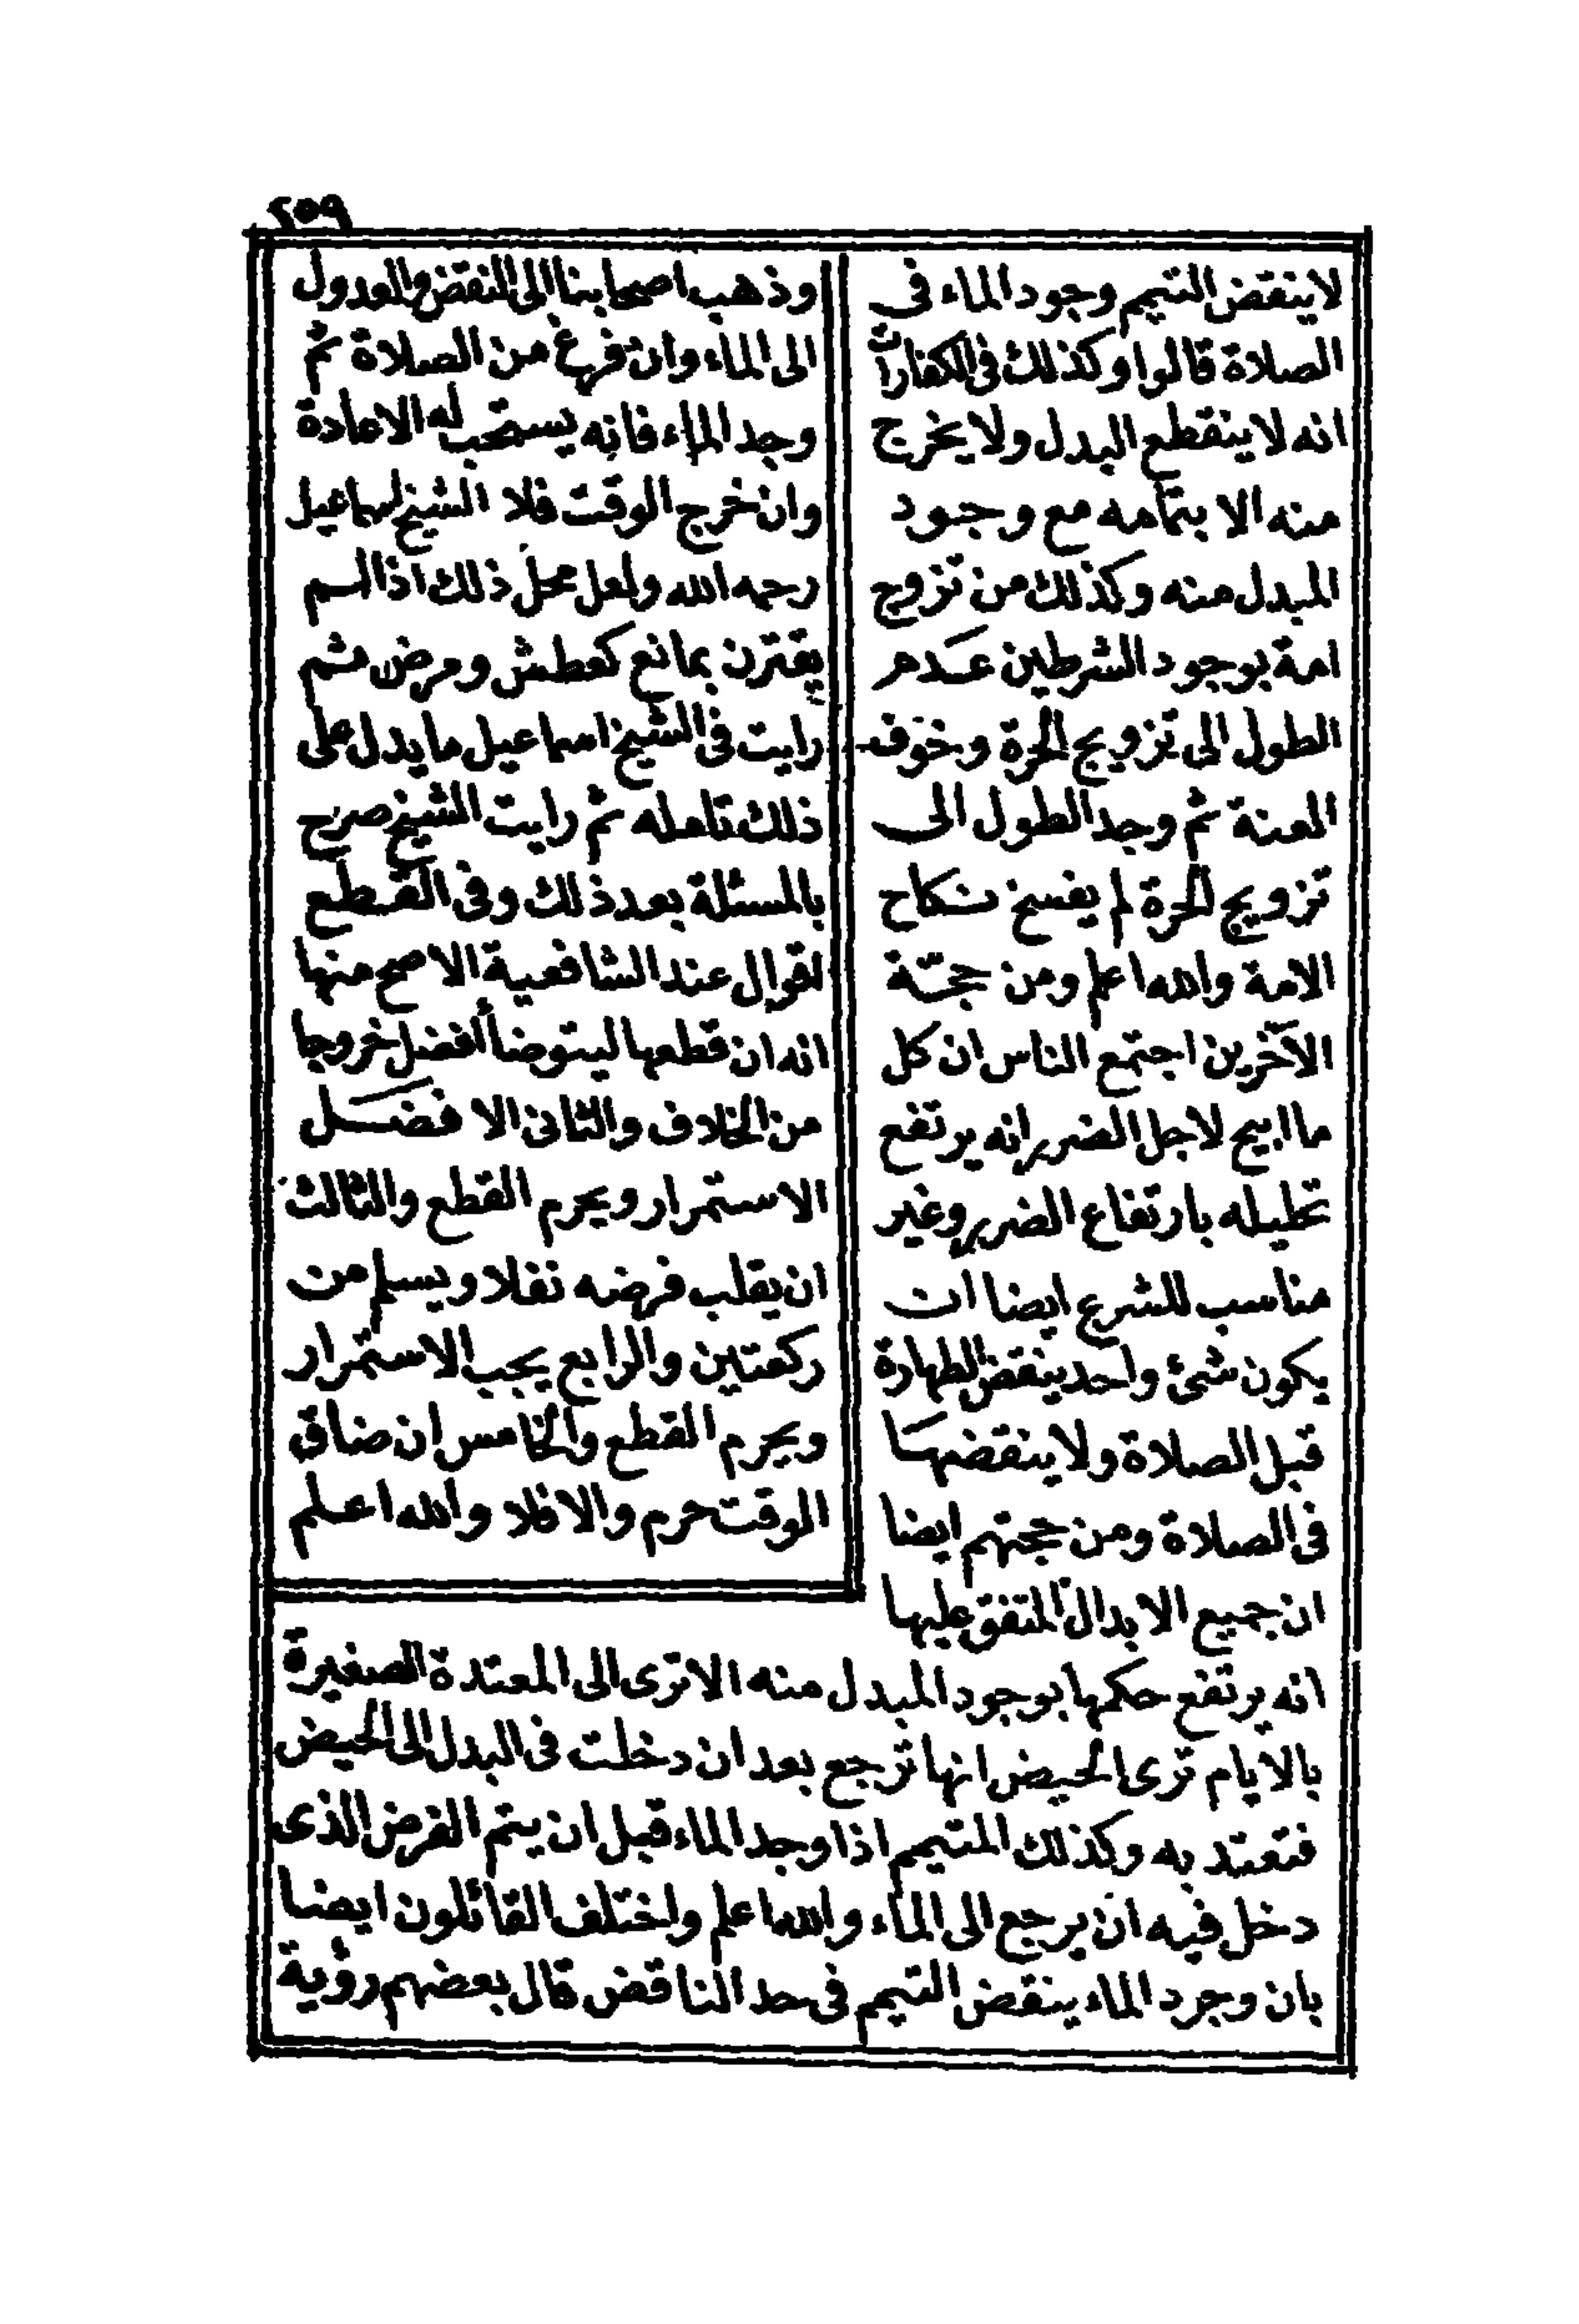 ٢٥٩
لا ينقض التيمم وجود الماء فى
الصلاة قالوا وكذلك فى الكفارات
انه لا ينقطع البدل ولا يخرج
منه الا بتمامه مع وجود
المبدل منه وكذلك من تزوج
امة بوجود الشرطين عدم
الطول الى تزويج الحرة وخوف
العنة ثم وجد الطول الى
تزويج الحرة لم يفسخ نكاح
الامة والله اعلم ومن حجّة
الآخرين اجتمع الناس ان كل
ما ابيح لاجل الضرر انه يرتفع
تحليله بارتفاع الضرر وغير
مناسب للشرع ايضا ان
يكون شئ واحد ينقض الطهارة
قبل الصلاة ولا ينقضها
فى الصلاة ومن حجتهم ايضا
ان جميع الابدال المتفق عليها
انه يرتفع حكمها بوجود المبدل منه الا ترى الى المعتدة الصغيرة
بالايام ترى الحيض انها ترجع بعد ان دخلت فى البدل الى الحيض
فتعتد به وكذلك المتيمم اذا وجد الماء قبل ان يتم الفرض الذى
دخل فيه ان يرجع الى الماء والله اعلم واختلف القائلون ايضا
بان وجود الماء ينقض التيمم فى حد الناقض قال بعضهم رؤية
وذهب اصحابنا الى النقض والعدول
الى الماء وان فرغ من الصلاة ثم
وجد الماء فانه يستحب له الاعادة
وان خرج الوقت فلا الشيخ اسماعيل
رحمه الله ولعل محل ذلك اذا لم
يقترن بمانع كعطش ومرض ثم
رايت فى الشيخ اسماعيل ما يدل على
ذلك تامله ثم رايت الشيخ صرح
بالمسئلة بعد ذلك وفى القطع
اقوال عند الشافعية الاصح منها
انه ان قطعها ليتوضأ أفضل خروجا
من الخلاف والثانى الافضل
الاستمرار ويحرم القطع والثالث
ان يقلب فرضه نفلا ويسلم من
ركعتين والرابع يجب الاستمرار
ويحرم القطع والخامس ان ضاق
الوقت حرم والا فلا والله اعلم